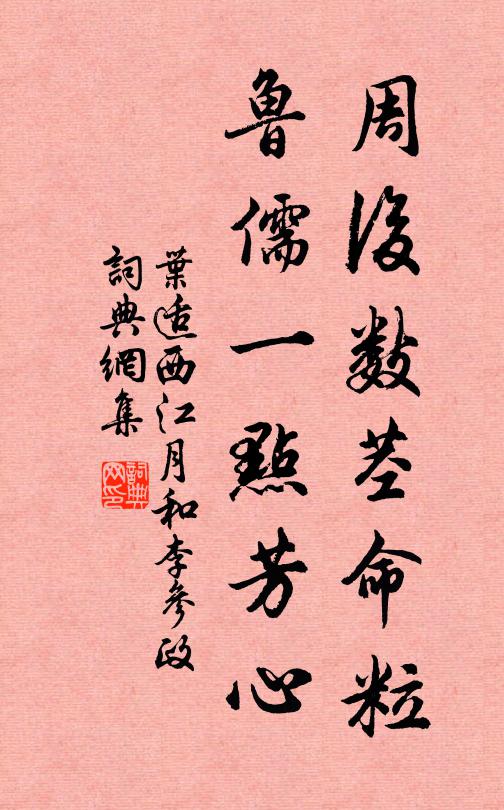 周後數莖命粒
魯儒一點芳心
葉适西江月和李參政
詞典網集
詞典网印